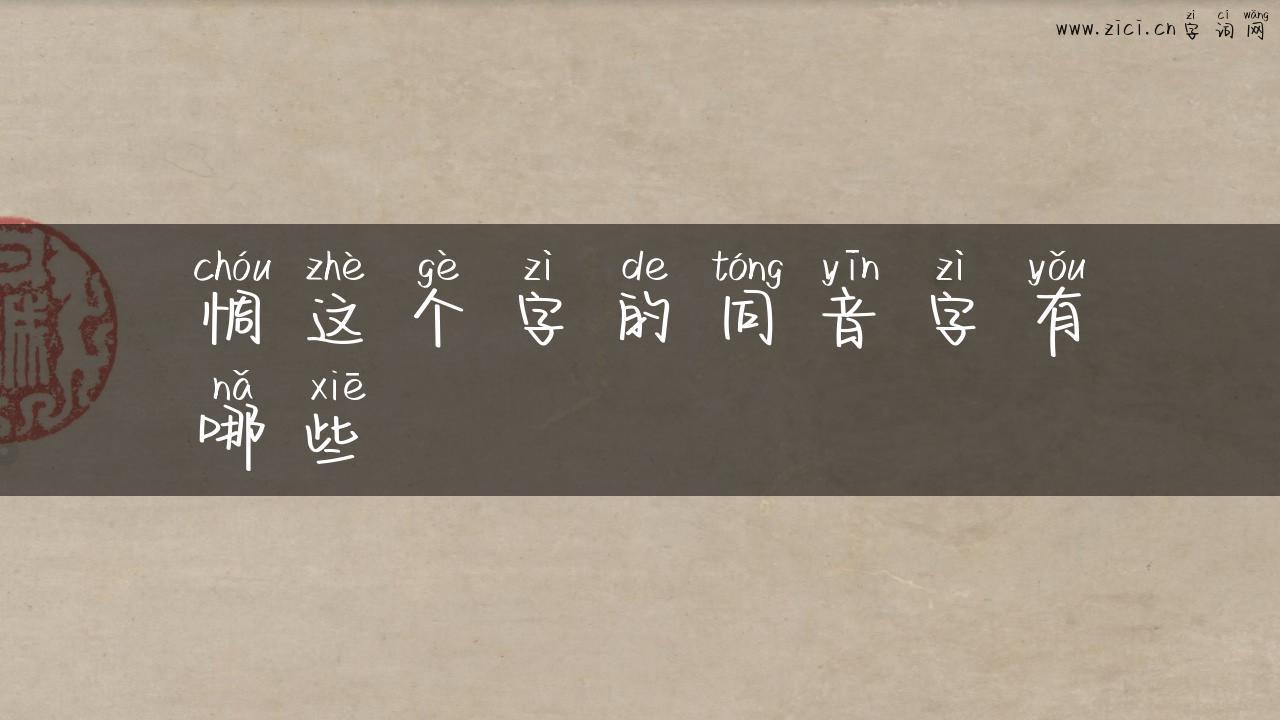 zì cí wǎng
www.zici.cn 字 词 网
chóu zhè gè zì de tóng yīn zì yǒu
惆 这 个 字 的 同 音 字 有
nǎ xiē
哪 些